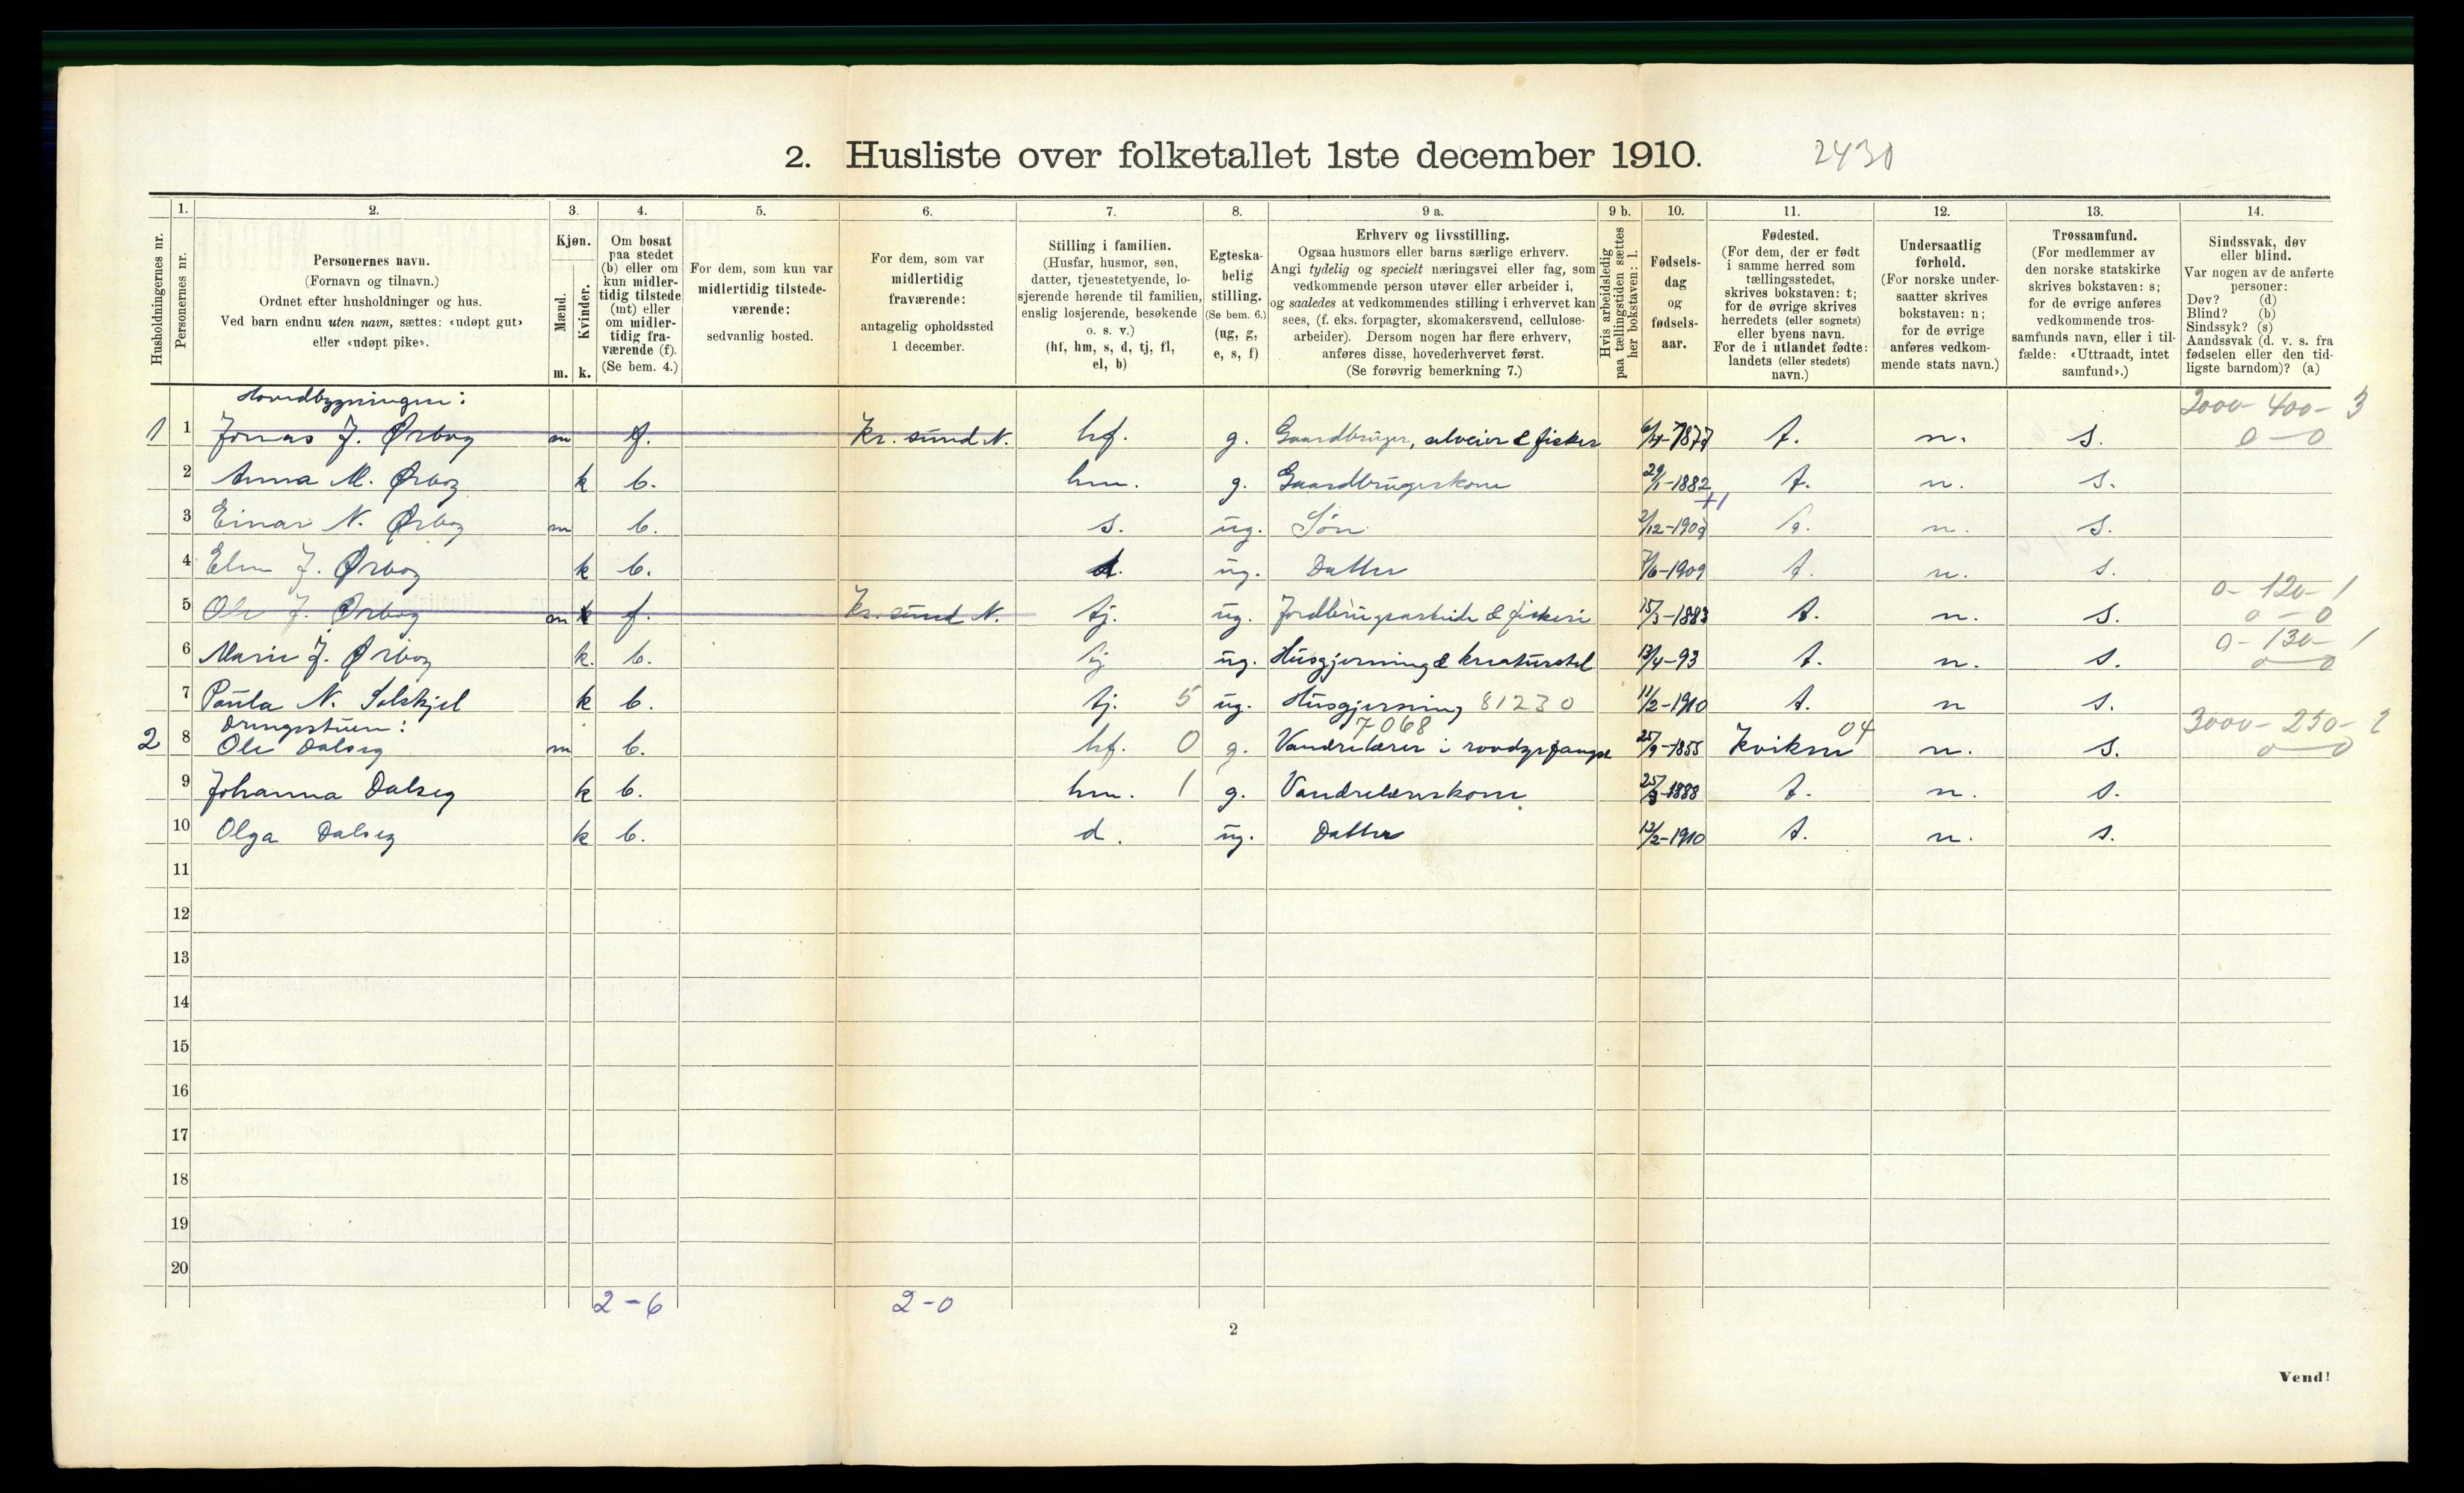 2. Husliste over folketallet 1ste december 1910. 2430
Husholdningernes nr.
1. Personernes nr.
2. Personernes navn.
(Fornavn og tilnavn.)
Ordnet efter husholdninger og hus.
Ved barn endnu uten navn, sættes: «udøpt gut»
eller «udøpt pike».
3. Kjøn.
Mænd. Kvinder.
m. k.
4. Om bosat
paa stedet
(b) eller om
kun midler-
tidig tilstede
(mt) eller
om midler-
tidig fra-
værende (f).
(Se bem. 4.)
5. For dem, som kun var
midlertidig tilstede-
værende:
sedvanlig bosted.
6. For dem, som var
midlertidig
fraværende:
antagelig opholdssted
1 december.
7. Stilling i familien.
(Husfar, husmor, søn,
datter, tjenestetyende, lo-
sjerende hørende til familien,
enslig losjerende, besøkende
o. s. v.)
(hf, hm, s, d, tj, fl,
el, b)
8. Egteska-
belig
stilling.
(Se bem. 6.)
(ug, g,
e, s, f)
9 a. Erhverv og livsstilling.
Ogsaa husmors eller barns særlige erhverv.
Angi tydelig og specielt næringsvei eller fag, som
vedkommende person utøver eller arbeider i,
og saaledes at vedkommendes stilling i erhvervet kan
sees, (f. eks. forpagter, skomakersvend, cellulose-
arbeider). Dersom nogen har flere erhverv,
anføres disse, hovederhvervet først.
(Se forøvrig bemerkning 7.)
9 b. Hvis arbeidsledig
paa tællingstiden sættes
her bokstaven: l.
10. Fødsels-
dag
og
fødsels-
aar.
11. Fødested.
(For dem, der er født
i samme herred som
tællingsstedet,
skrives bokstaven: t;
for de øvrige skrives
herredets (eller sognets)
eller byens navn.
For de i utlandet fødte:
landets (eller stedets)
navn.)
12. Undersaatlig
forhold.
(For norske under-
saatter skrives
bokstaven: n;
for de øvrige
anføres vedkom-
mende stats navn.)
13. Trossamfund.
(For medlemmer av
den norske statskirke
skrives bokstaven: s;
for de øvrige anføres
vedkommende tros-
samfunds navn, eller i til-
fælde: «Uttraadt, intet
samfund».)
14. Sindssvak, døv
eller blind.
Var nogen av de anførte
personer:
Døv? (d)
Blind? (b)
Sindssyk? (s)
Aandssvak (d. v. s. fra
fødselen eller den tid-
ligste barndom)? (a)
Hovedbygningen: 2000- 400- 3
1 1 Jonas J. Ørbog m f. Kr. sund N. hf. g. Gaardbruger, selveier & fisker 1877 t. n. s. 0-0
2 Anna M. Ørbog k b. hm. g. Gaardbrugerskone 29/1-1882 t. n. s.
3 Einar N. Ørbog m b. s. ug. Søn 2/12-190 t. n. s.
4 J. Ørbog k b. d. ug. Datter 7/6-1909 t. n. s.
0- 120- 1
5 Ole J. Ørbog m f. Kr. sund N. tj. ug. Jordbrugsarbeide & fiskeri 15/3-1883 t. n. s. 0-0
0- 130- 1
6 Marie J. Ørbog k. b. tj ug. Husgjerning & kreaturstel 13/4-93 t. n. s. 0-0
7 Paula N. Solskjel k b. tj. 5 ug. Husgjerning 81230 11/2-1910 t. n s.
Drengestuen: 7068 04 3000- 250- 2
2 8 Ole Dalseg m b. hf. 0 g. Vandrelærer i rovdyrfangst 25/9-1855 Kvikne n. s. 0-0
9 Johanna Dalseg k b. hm. 1 g. Vandrelærerskone 25/3-1888 t. n. s.
10 Olga Dalseg k b. d. ug. Datter 12/2-1910 t. n. s.
11
12
13
14
15
16
17
18
19
20
2-6 2-0
2
Vend!